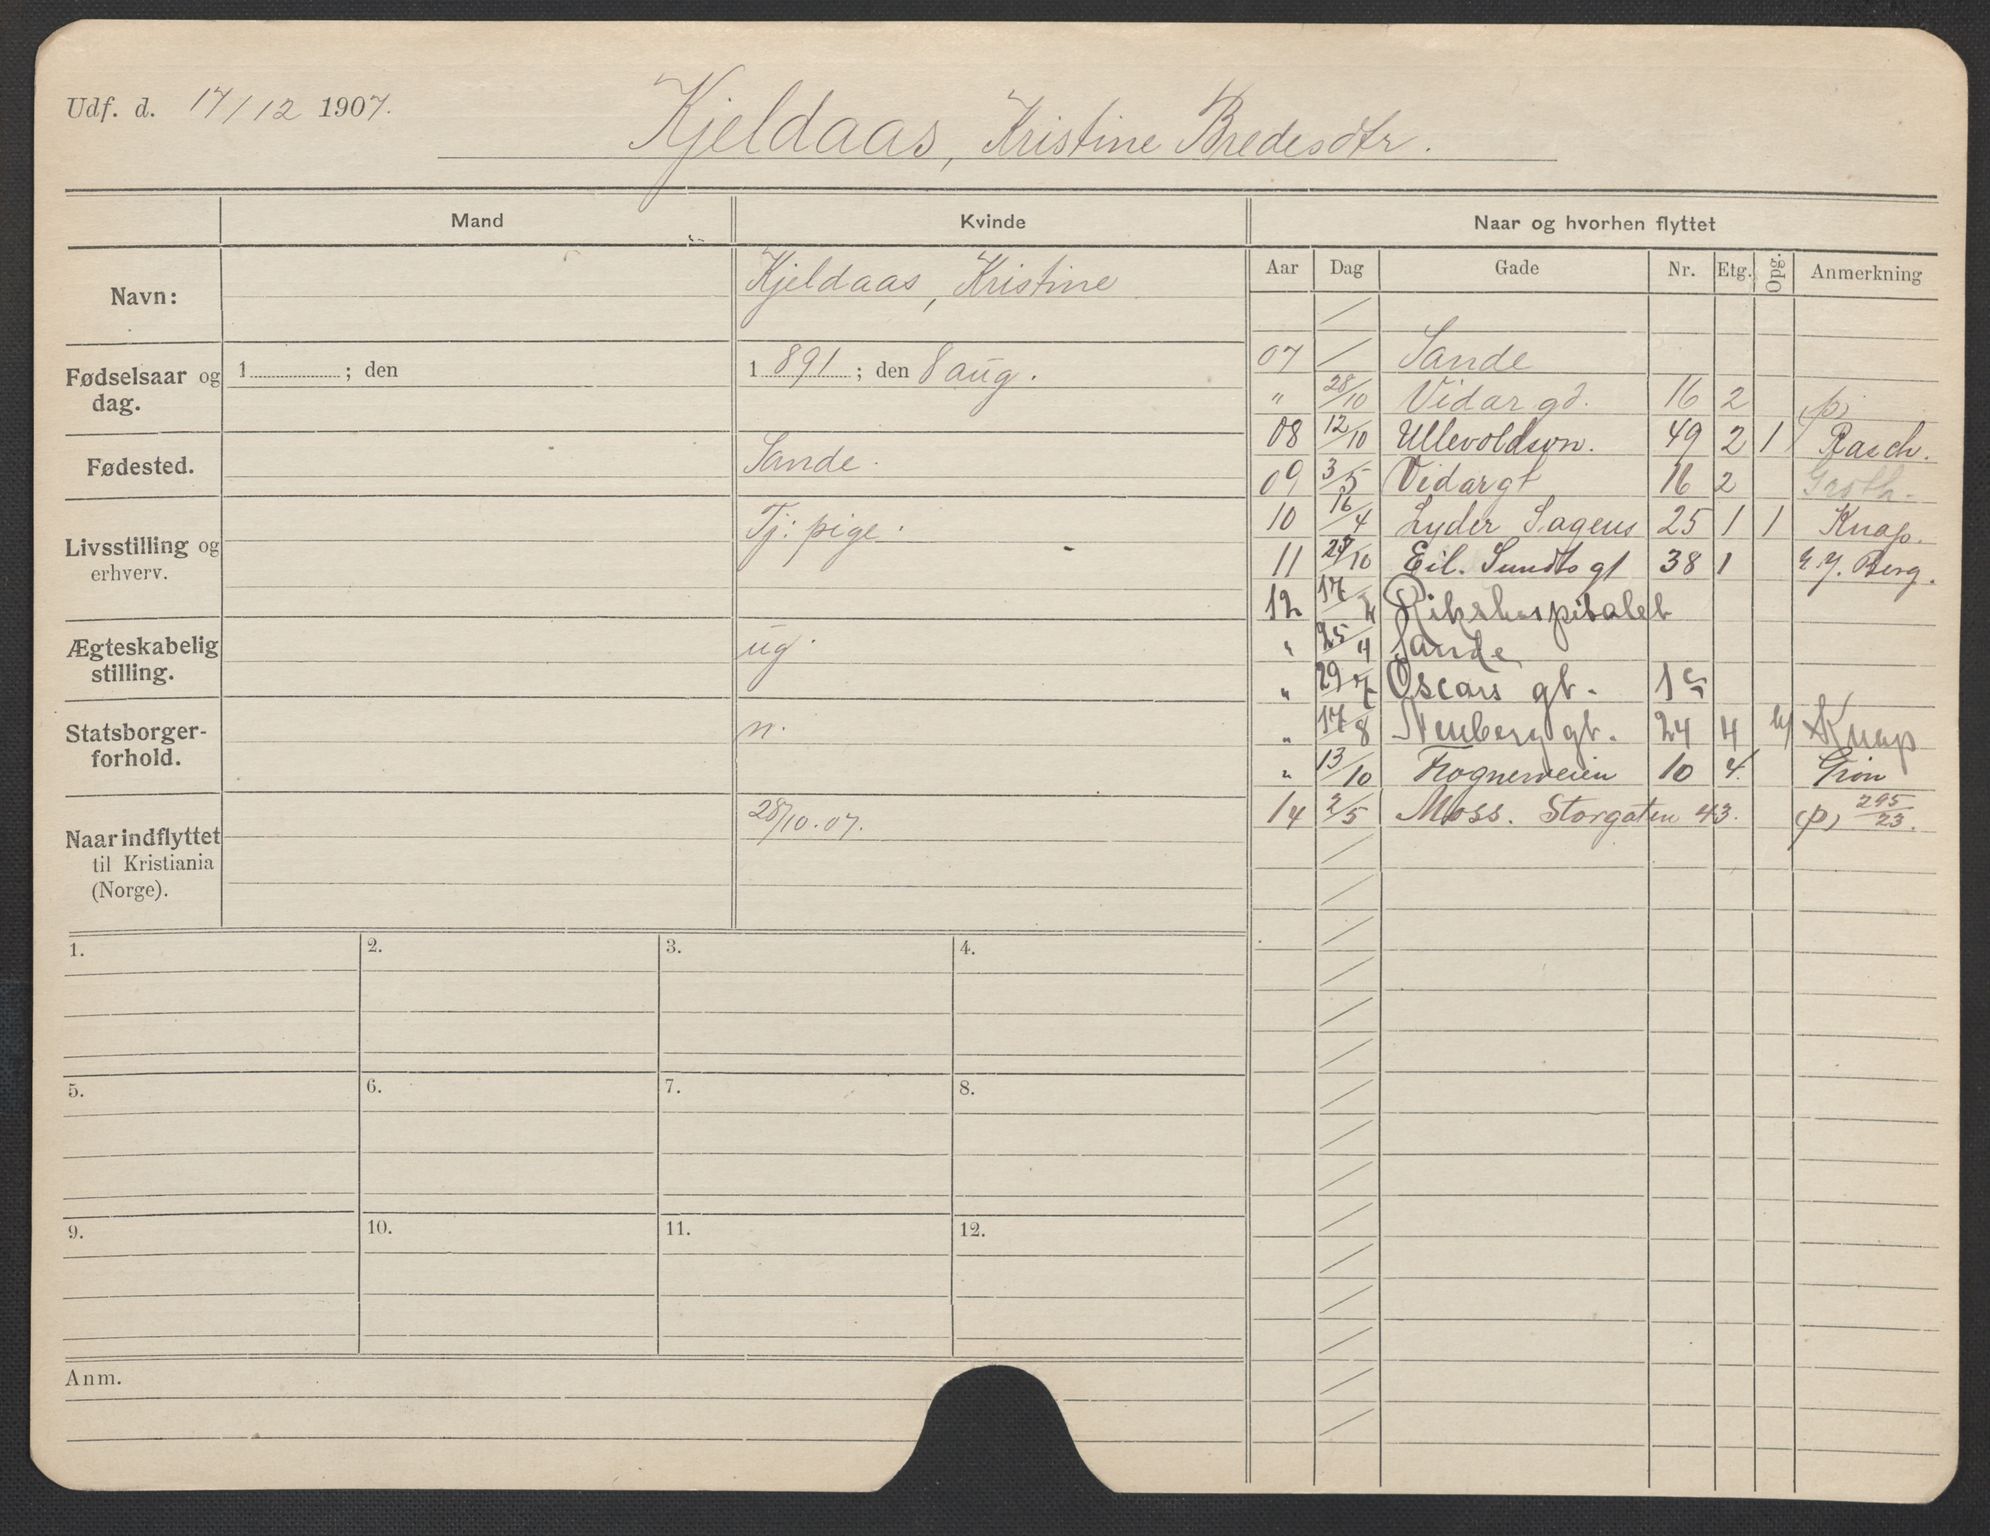 Udf. d. 17/12 1907.
Kjeldaas, Kristine Bredesdtr.
Mand Kvinde Naar og hvorhen flyttet
Aar Dag Gade Nr. Etg. Opg. Anmerkning
Navn: Kjeldaas, Kristine
Fødselsaar og dag. 1 ; den 1891 ; den 8 aug.
Fødested. Sande.
Livsstilling og erhverv. Tj: pige.
Ægteskabelig stilling. ug.
Statsborger-forhold. n.
Naar indflyttet til Kristiania (Norge). 28/10.07.
07 / Sande
" 28/10 Vidar gd. 16 2 (p)
08 12/10 Ullevoldsvn. 49 2 1 Rasch.
09 3/5 Vidargt 16 2 Groth.
10 16/4 Lyder Sagens 25 1 1 Knap.
11 27/10 Eil. Sundts gt 38 1 Berg.
12 17/2 Rikshospitalet
" 25/4 Sande
" 29/7 Oscars gt. 1c
" 17/8 Neuberg gt. 24 4 Knap
" 13/10 Frognerveien 10 4. Grøn
14 2/5 Moss. Storgaten 43. (p) 295/23.
1. 2. 3. 4.
5. 6. 7. 8.
9. 10. 11. 12.
Anm.